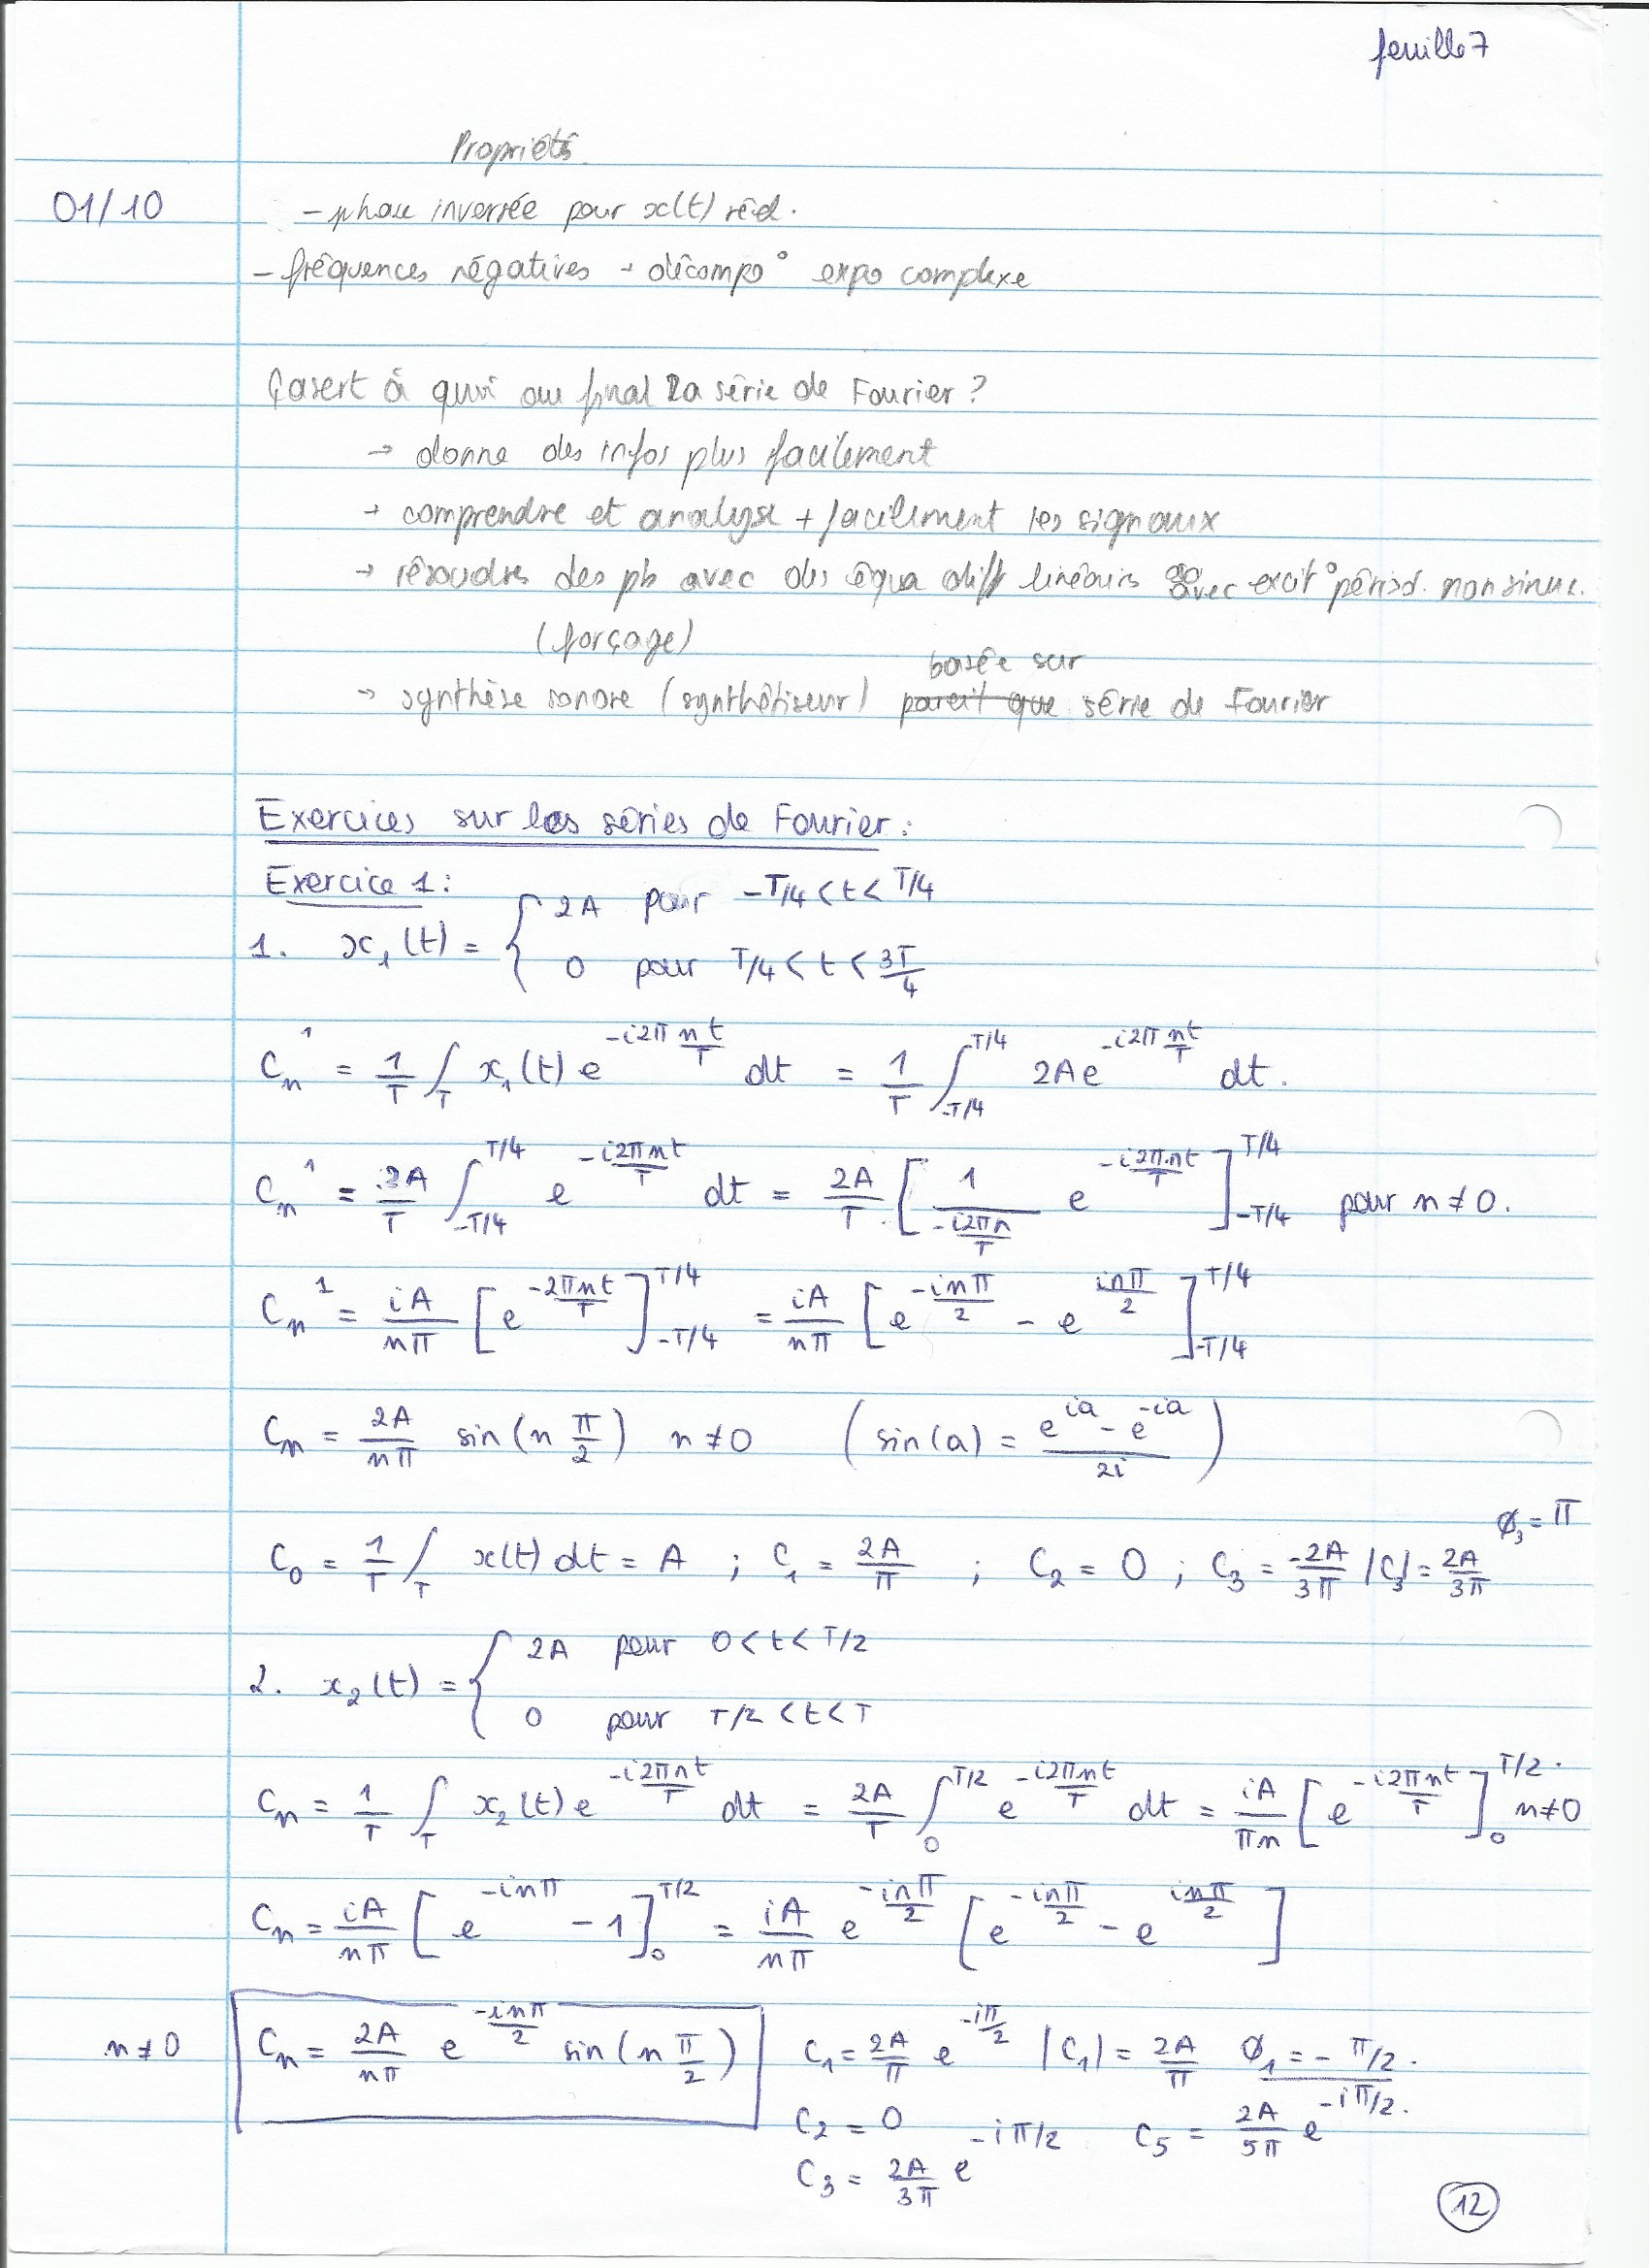 feuille 7
Propriétés
01/10 - phase inversée pour x(t) réel.
- fréquences négatives → décompo° expo complexe
Ça sert à quoi au final la série de Fourier ?
→ donne des infos plus facilement
→ comprendre et analyse + facilement les signaux
→ résoudre des pb avec des équa diff linéaires avec excit° périod. non sinus.
(forçage)
basée sur
→ synthèse sonore (synthétiseur) parait que série de Fourier
Exercices sur les séries de Fourier :
Exercice 1 :
1. x₁(t) = { 2A pour -T/4 < t < T/4
0 pour T/4 < t < 3T/4
Cn¹ = 1/T ∫_T x₁(t) e^(-i2π nt/T) dt = 1/T ∫_(-T/4)^(T/4) 2A e^(-i2π nt/T) dt.
Cn¹ = 2A/T ∫_(-T/4)^(T/4) e^(-i2πnt/T) dt = 2A/T [ 1/(-i2πn/T) e^(-i2πnt/T) ]_(-T/4)^(T/4) pour n ≠ 0.
Cn¹ = iA/nπ [ e^(-2πnt/T) ]_(-T/4)^(T/4) = iA/nπ [ e^(-inπ/2) - e^(inπ/2) ]_(-T/4)^(T/4)
Cn = 2A/nπ sin(n π/2) n ≠ 0 ( sin(a) = (e^(ia) - e^(-ia))/2i )
C₀ = 1/T ∫_T x(t) dt = A ; C₁ = 2A/π ; C₂ = 0 ; C₃ = -2A/3π |C₃| = 2A/3π ø₃ = π
2. x₂(t) = { 2A pour 0 < t < T/2
0 pour T/2 < t < T
Cn = 1/T ∫_T x₂(t) e^(-i2πnt/T) dt = 2A/T ∫_0^(T/2) e^(-i2πnt/T) dt = iA/πn [ e^(-i2πnt/T) ]_0^(T/2) n ≠ 0
Cn = iA/nπ [ e^(-inπ) - 1 ]_0^(T/2) = iA/nπ e^(-inπ/2) [ e^(-inπ/2) - e^(inπ/2) ]
n ≠ 0 Cn = 2A/nπ e^(-inπ/2) sin(n π/2) C₁ = 2A/π e^(-iπ/2) |C₁| = 2A/π ø₁ = - π/2.
C₂ = 0 C₅ = 2A/5π e^(-iπ/2).
C₃ = 2A/3π e^(-iπ/2)
12